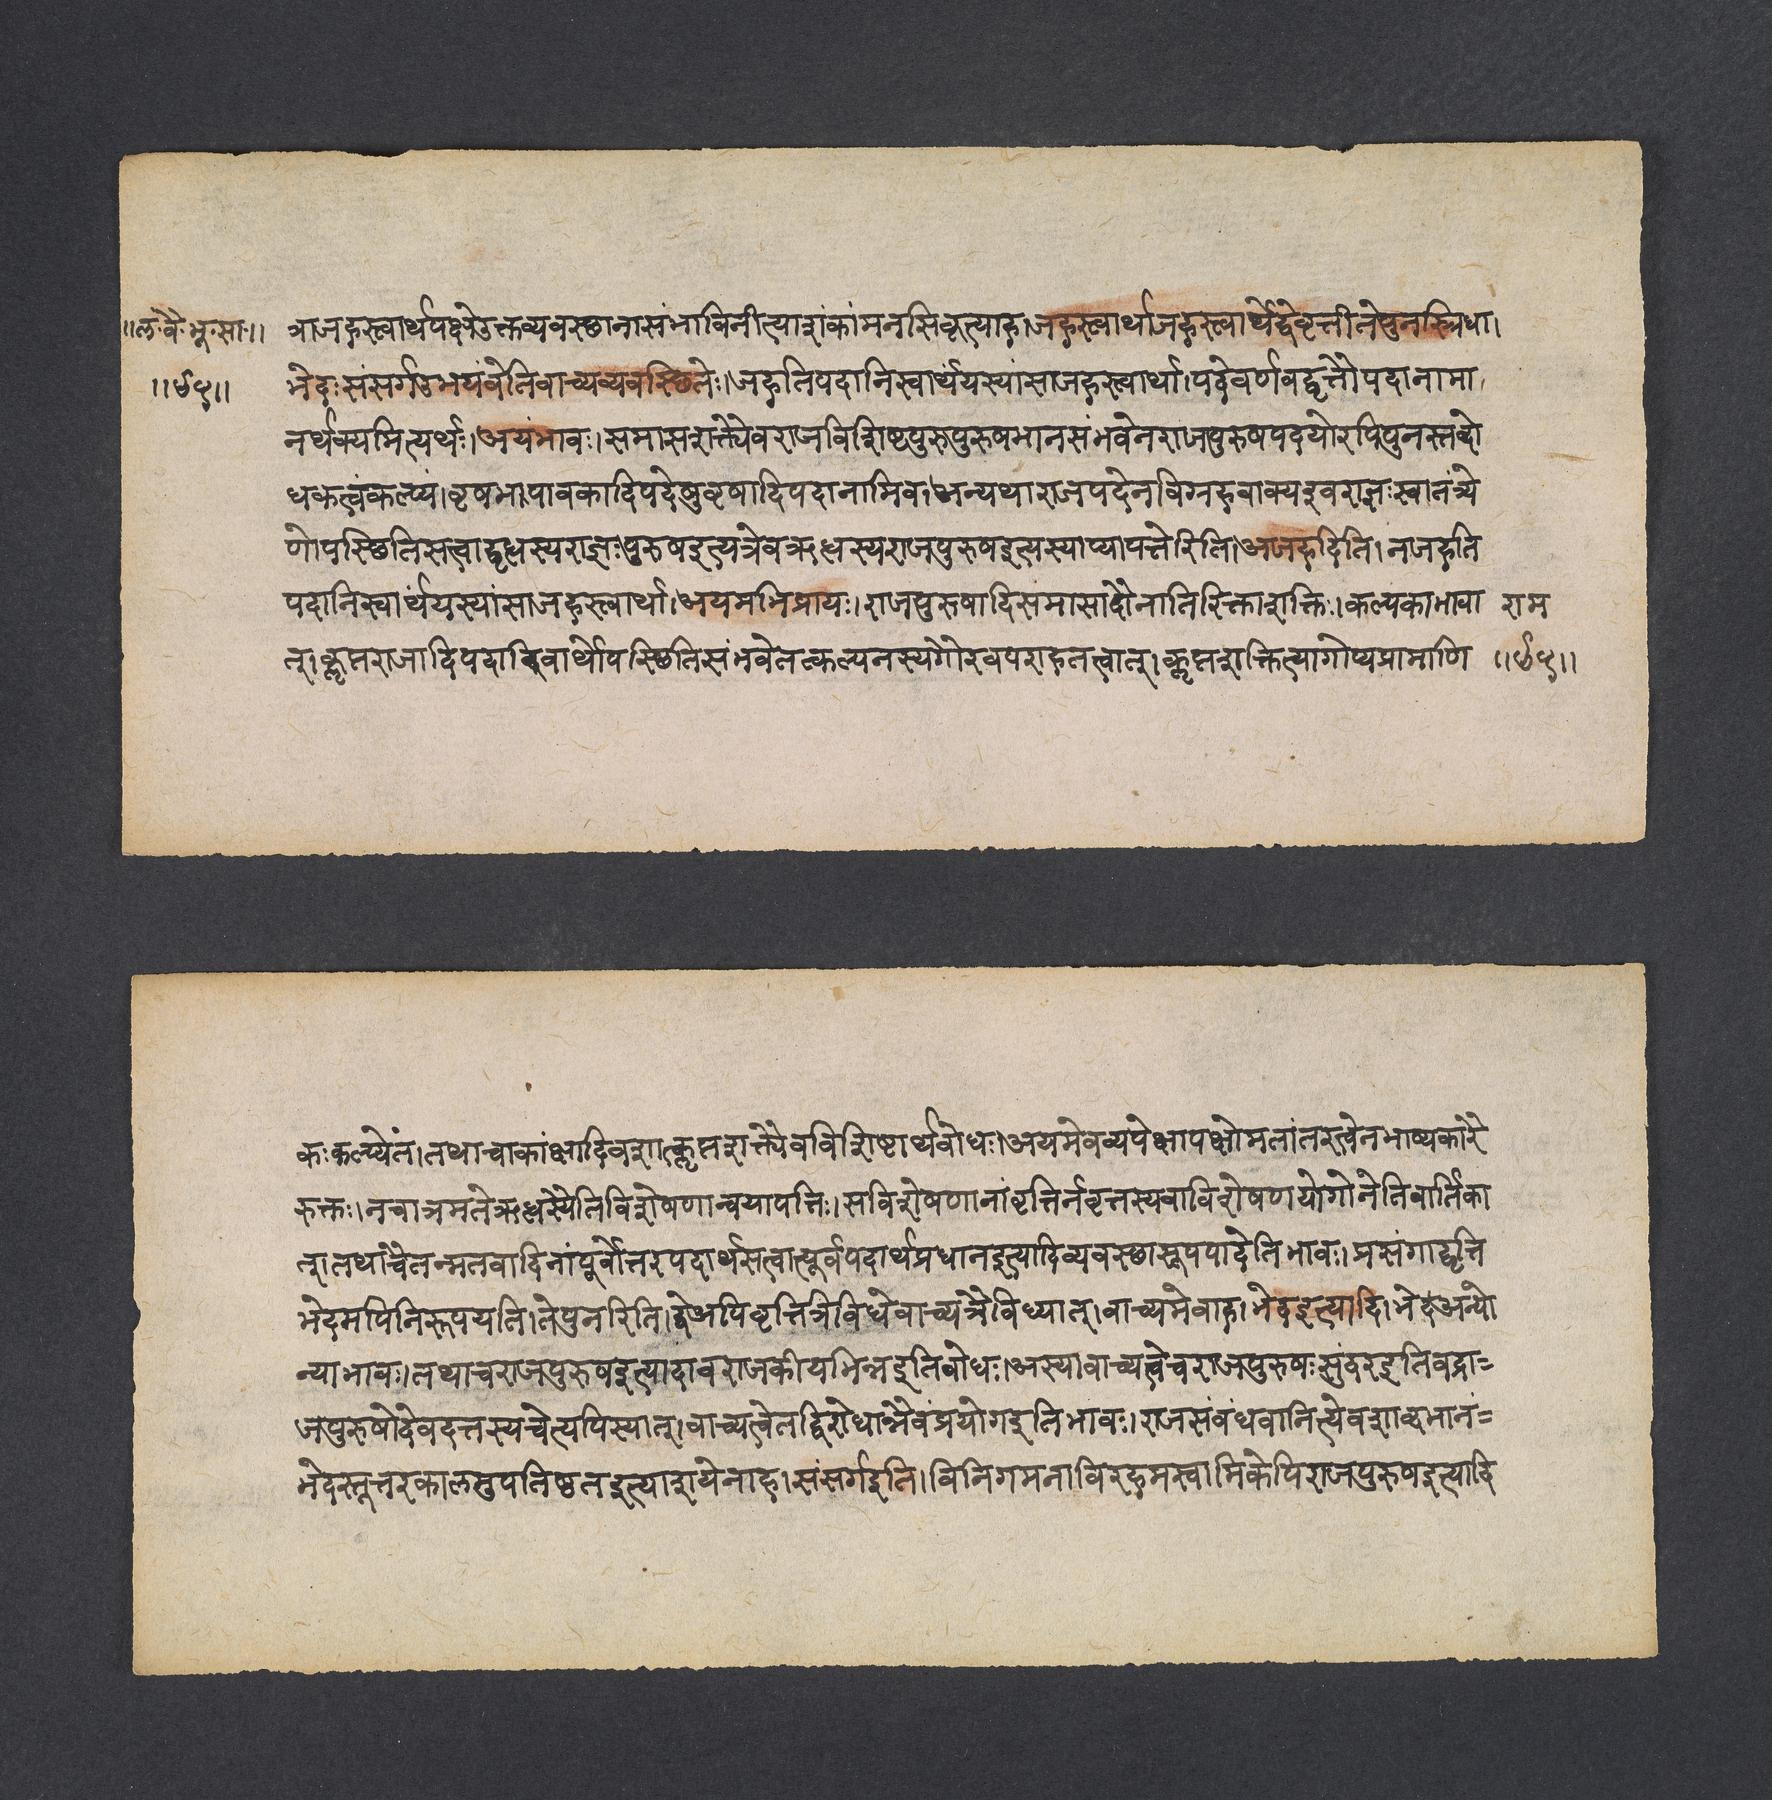 ॥ल॰वै॰भू॰सा॰॥
॥४५॥
त्राजहत्स्वार्थपक्षेउक्तव्यवस्छानासंभाविनीत्याशंकांमनसिकृत्याह।जहत्स्वार्थाजहत्स्वार्थेद्वेवृत्तीतेपुनस्त्रिधा।
भेदःसंसर्गउभयंवेतिवाच्यव्यवस्छितेः।जहतिपदानिस्वार्थंयस्यांसाजहत्स्वार्था।पदेवर्णवद्वृत्तौपदानामा
नर्थक्यमित्यर्थः।अयंभावः।समासशक्त्यैवराजविशिष्टपुरुपुरुषभानसंभवेनराजपुरुषपदयोरपिपुनस्तद्बो
धकत्वंकल्प्यं।वृषभापावकादिपदेषुवृषादिपदानामिव।अन्यथाराजपदेनविग्रहवाक्यइवराज्ञःस्वातंत्र्ये
णोपस्छितिसत्वादृद्धस्यराज्ञःपुरुषइत्यत्रेवऋद्धस्यराजपुरुषइत्यस्याप्यापत्तेरिति।अजहदिति।नजहति
पदानिस्वार्थंयस्यांसाजहत्स्वार्था।अयमभिप्रायः।राजपुरुषादिसमासादौनातिरिक्ताशक्तिः।कल्पकाभावा
राम
त्।कॢप्तराजादिपदादेवार्थोपस्छितिसंभवेतत्कल्पनस्यगौरवपराहतत्वात्।कॢप्तशक्तित्यागोप्यप्रामाणि
॥४५॥
कःकल्प्येत।तथाचाकांक्षादिवशात्कॢप्तशक्त्यैवविशिष्टार्थबोधः।अयमेवव्यपेक्षापक्षोमतांतरत्वेनभाष्यकारै
रुक्तः।नचात्रमतेऋद्धस्येतिविशेषणान्वयापत्तिः।सविशेषणानांवृत्तिर्नवृत्तस्यवाविशेषणयोगोनेतिवार्तिका
त्।तथाचैतन्मतवादिनांपूर्वोत्तरपदार्थसत्वात्पूर्वपदार्थप्रधानइत्यादिव्यवस्छासूपपादेतिभावः।प्रसंगाद्वृत्ति
भेदमपिनिरूपयति।तेपुनरिति।द्वेअपिवृत्तित्रिविधेवाच्यत्रैविध्यात्।वाच्यमेवाह।भेदइत्यादि।भेदःअन्यो
न्याभावः।तथाचराजपुरुषइत्यादावराजकीयभिन्नइतिबोधः।अस्यावाच्यत्वेचराजपुरुषःसुंदरइतिवद्रा=
जपुरुषोदेवदत्तस्यचेत्यपिस्यात्।वाच्यत्वेतद्विरोधान्नैवंप्रयोगइतिभावः।राजसंबंधवानित्येवशाब्दभानं=
भेदस्तूत्तरकालमुपतिष्ठतइत्याशयेनाह।संसर्गइति।विनिगमनाविरहमस्वामिकेपिराजपुरुषइत्यादि